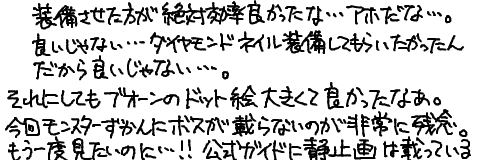 装備させた方が絶対効率良かったな…アホだな…。
良いじゃない…ダイヤモンドネイル装備してもらいたかったん
だから良いじゃない…。
それにしてもブオーンのドット絵大きくて良かったなあ。
今回モンスターずかんにボスが載らないのが非常に残念。
もう一度見たいのに…!!公式ガイドに静止画は載っている